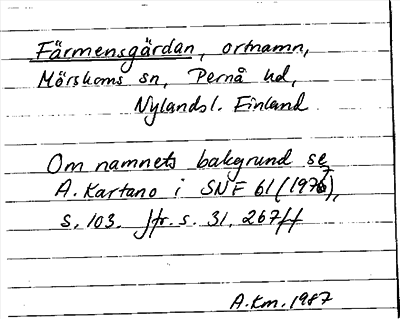 Färmensgärdan, ortnamn,
Mörskoms sn, Pernå hd,
Nylands l. Finland
Om namnets bakgrund se
A. Kartano i SNF 61 (1973),
s. 103. Jfr. s. 31, 267ff
A.Km. 1987